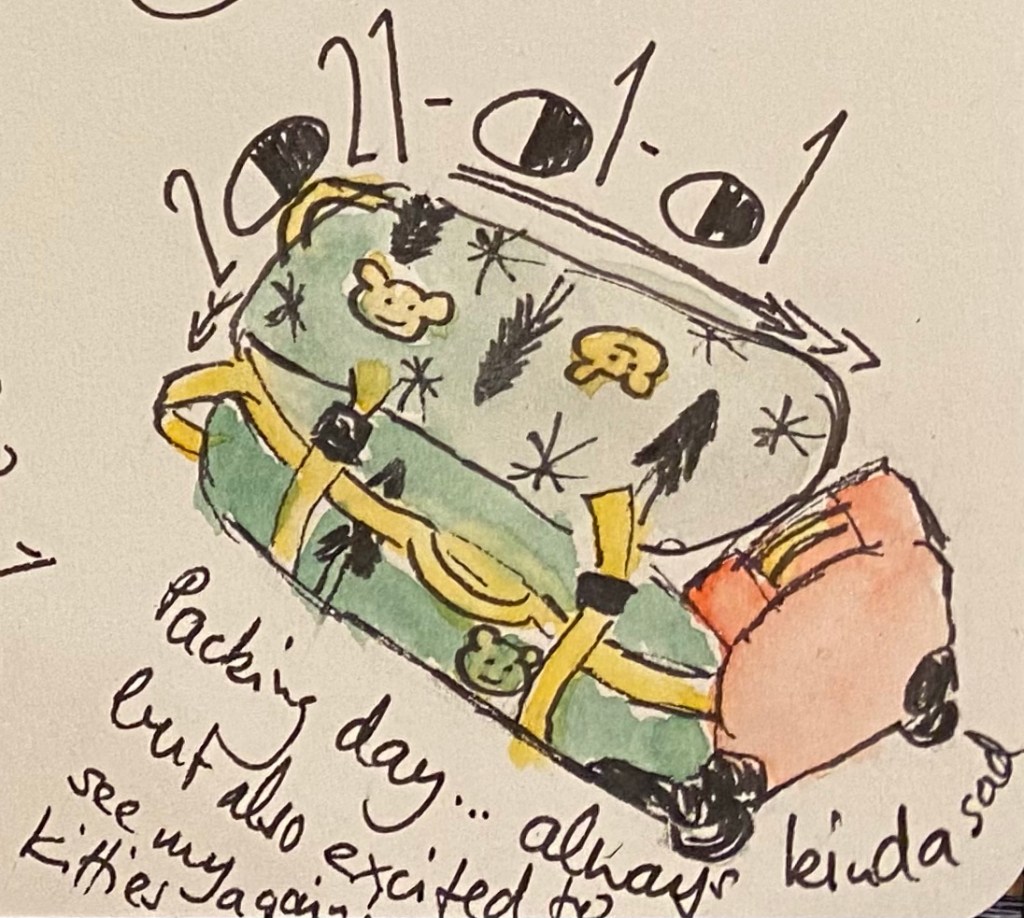 2021-01-01
Packing day... always kinda sad
but also excited to
see my
kitties again!